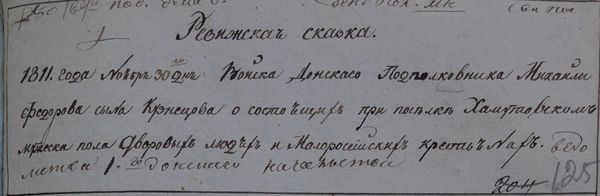 1
Ревижская сказка.
1811. года Ноябр 30 го дня Войска Донскаго Подполковника Михайли
Федорова сына Кузнецова о состоящих при поселке Хамутовском
мужеска пола Дворовых людех и Малоросейских крестьянах. Ведо
мства 1. го донскаго начальства
204
125